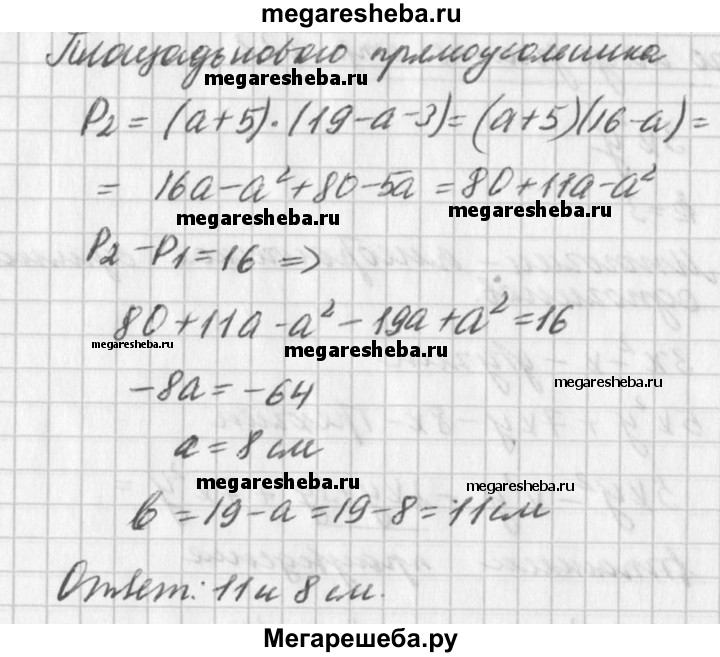 megaresheba.ru
Площадь нового прямоугольника
megaresheba.ru
P2 = (a+5)·(19-a-3) = (a+5)(16-a) =
= 16a-a²+80-5a = 80+11a-a²
megaresheba.ru megaresheba.ru
P2-P1=16 =>
80+11a-a²-19a+a²=16
megaresheba.ru megaresheba.ru
megaresheba.ru
-8a=-64
a=8 см
megaresheba.ru megaresheba.ru
в=19-a=19-8=11 см
Ответ: 11 и 8 см.
Мегарешеба.ру